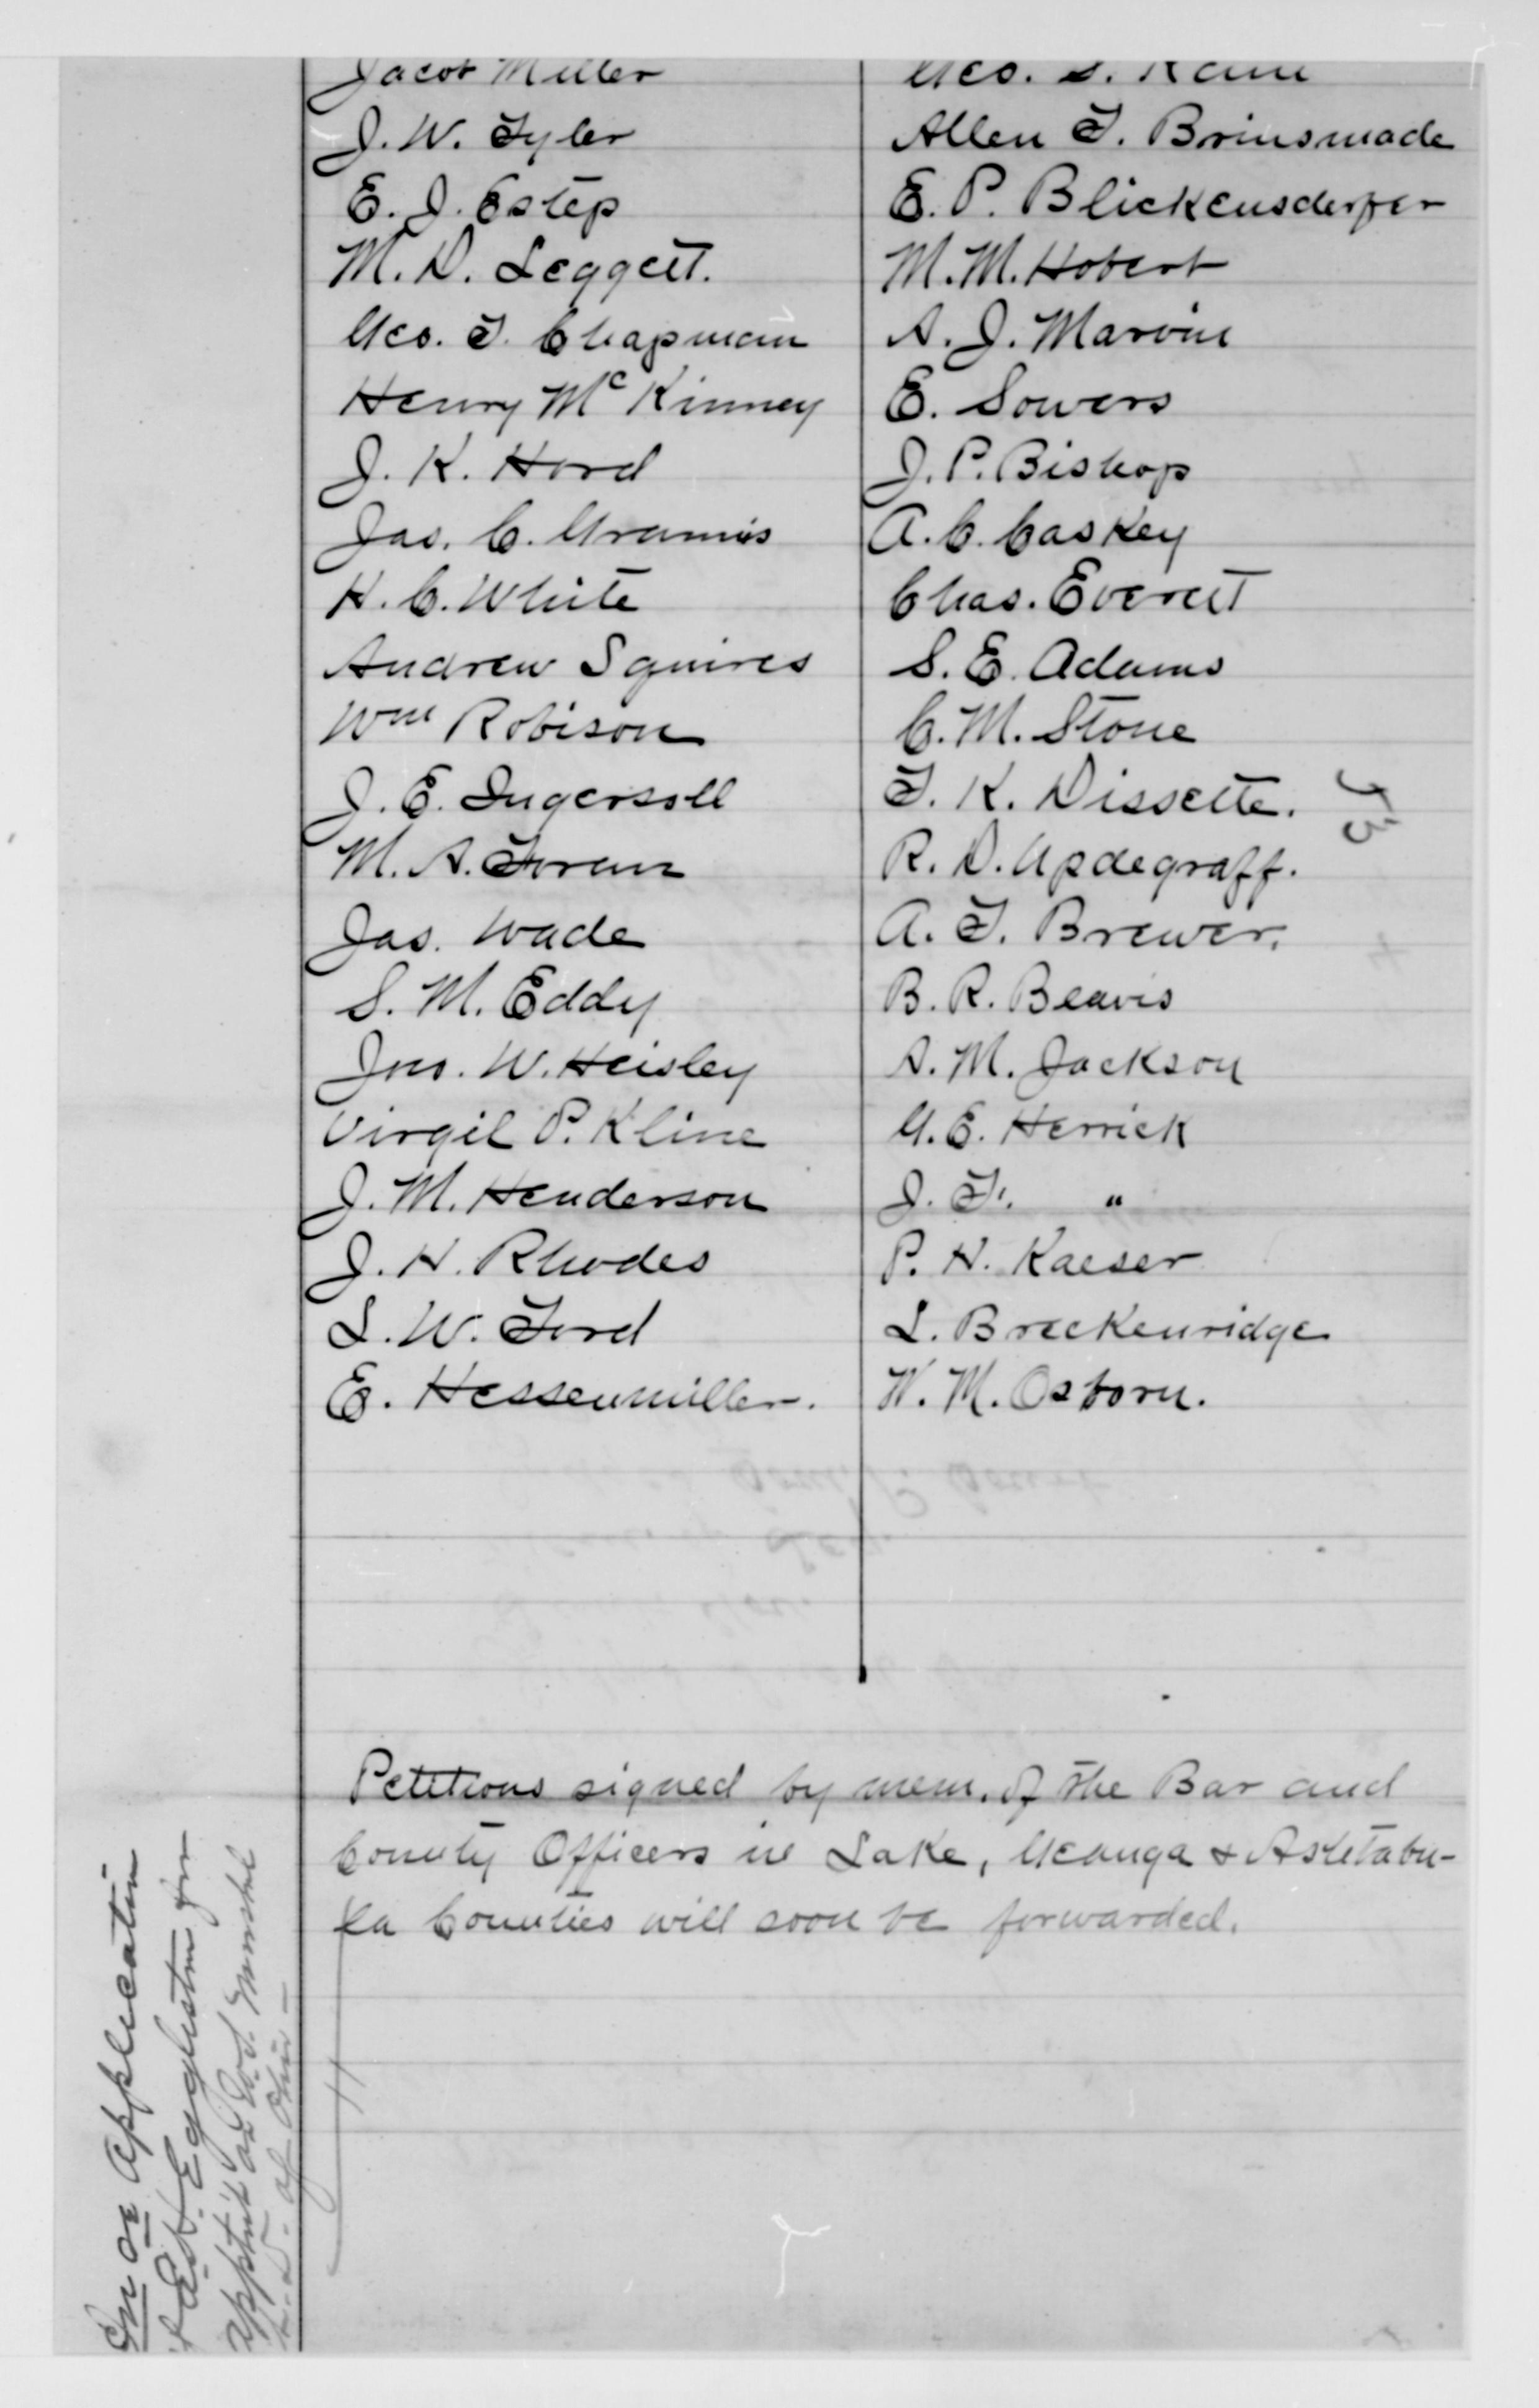 Jacob Miller
J. W. Tyler
E. J. Estep
M. D. Leggett.
Geo. T. Chapman
Henry McKinney
J. K. Hord
Jas. C. Grannis
H. C. White
Andrew Squires
Wm Robison
J. E. Ingersoll
M. A. Foran
Jas. Wade
S. M. Eddy
Jno. W. Heisley
Virgil P. Kline
J. M. Henderson
J. H. Rhodes
L. W. Ford
E. Hessenmiller.
Geo. S. Kain
Allen T. Brinsmade
E. P. Blickensderfer
M. M. Hobart
A. J. Marvin
E. Sowers
J. P. Bishop
A. C. Caskey
Chas. Everett
S. E. Adams
C. M. Stone
T. K. Dissette.
R. D. Updegraff.
A. T. Brewer.
B. R. Beavis
A. M. Jackson
G. E. Herrick
J. F. "
P. H. Kaeser
L. Breckenridge
W. M. Osborn.
Petitions signed by mem. of the Bar and
County Officers in Lake, Geauga & Ashtabu-
la Counties will soon be forwarded.
In re Application
of E. H. Eggleston for
appt'mt as U.S. Marshal
N. D. of Ohio –